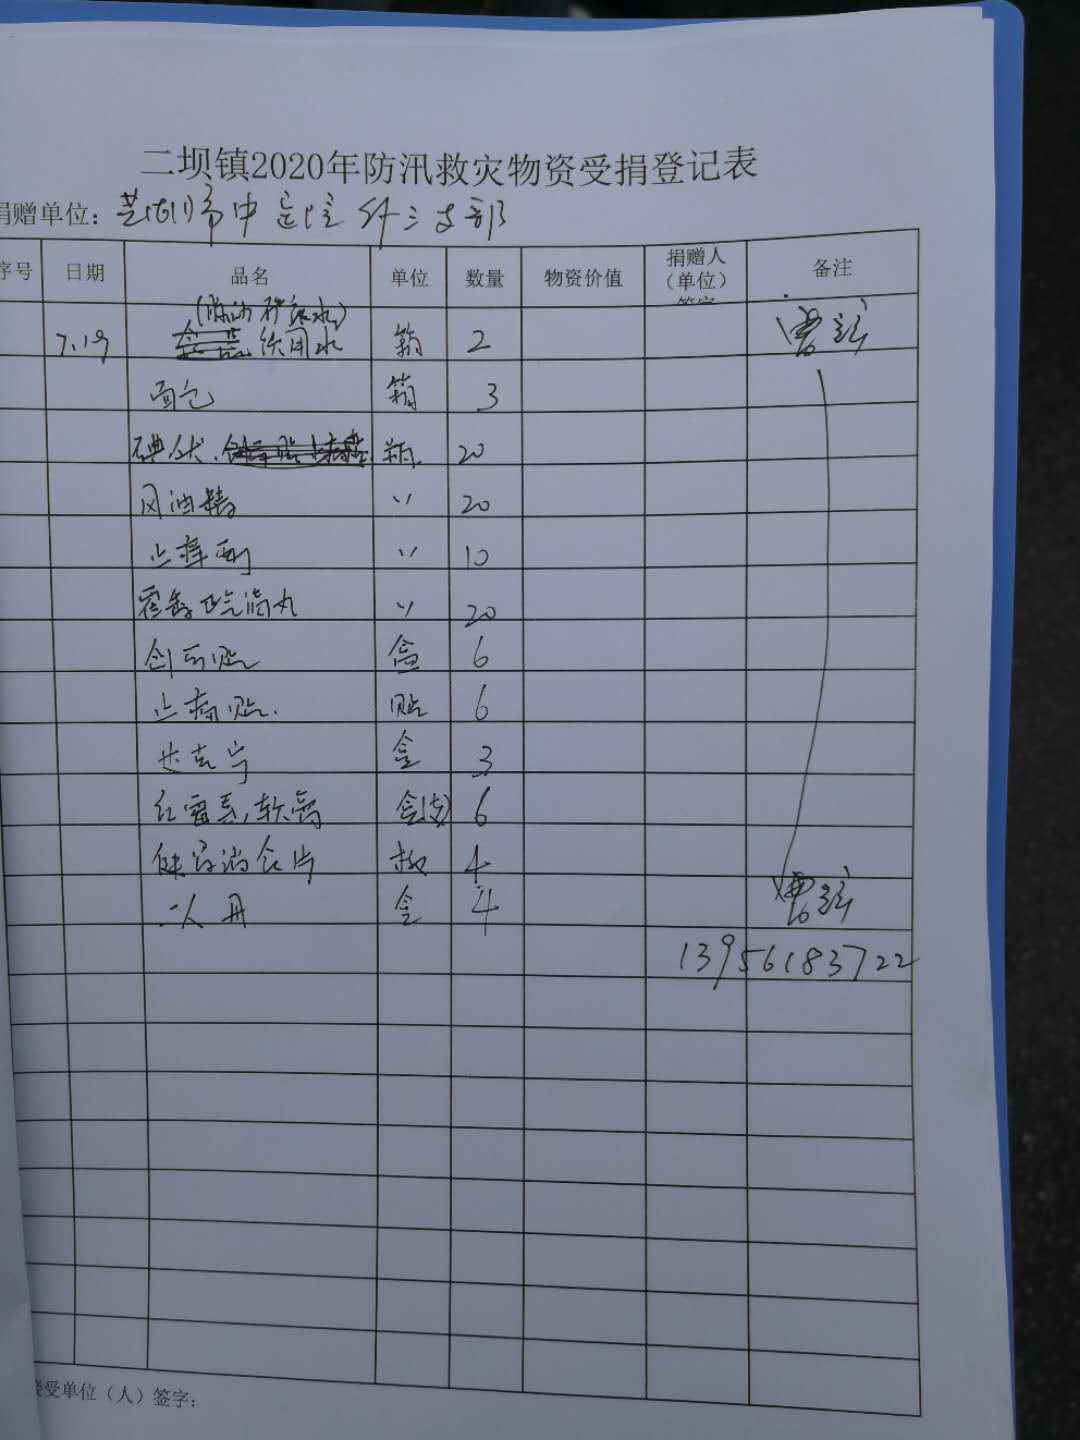 二坝镇2020年防汛救灾物资受捐登记表
捐赠单位：芜湖市中医院外三支部
序号 日期 品名 单位 数量 物资价值 捐赠人（单位）签字 备注
矿泉水)
7.19 饮用水 箱 2
面包 箱 3
碘伏. 瓶 20
风油精 〃 20
止痒 〃 10
藿香正气滴丸 〃 20
创可贴 盒 6
止痛贴. 贴 6
达克宁 盒 3
红霉素,软膏 盒(支) 6
健胃消食片 板 4
人丹 盒 4
13956183722
接受单位（人）签字：